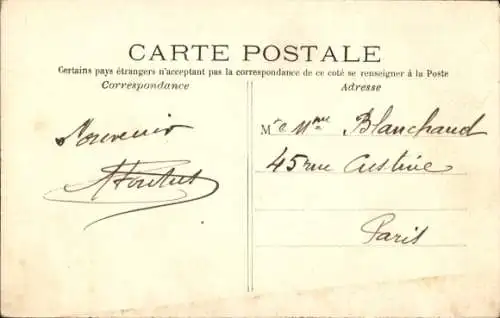 CARTE POSTALE
Certains pays étrangers n'acceptant pas la correspondance de ce coté se renseigner à la Poste
Correspondance
Adresse
Souvenir
M r & Mme Blanchaud
45 rue Custine
Paris